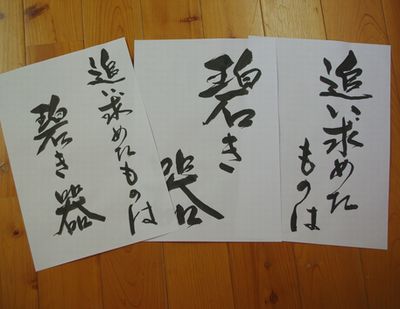 追い求めたものは
碧き器
碧き
器
追い求めた
ものは